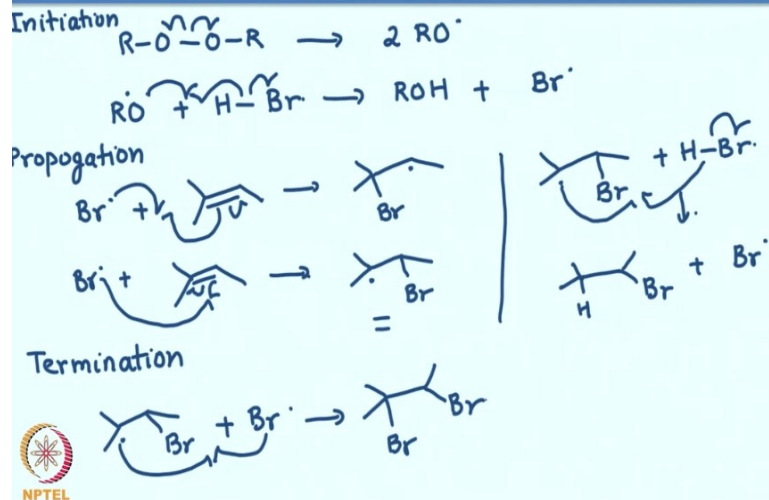 Initiation
R–O–O–R → 2 RO·
RO· + H–Br → ROH + Br·
Propogation
Br· + → Br
Br· + → Br
Br + H–Br
H Br + Br·
Termination
Br + Br· → Br Br
NPTEL